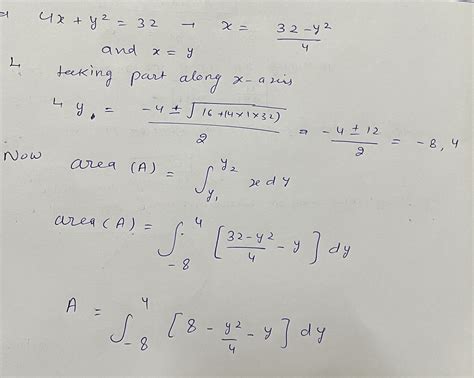 4x + y² = 32 → x = (32-y²)/4
and x = y
↳ taking part along x-axis
↳ y = (-4 ± √(16+(4×1×32)))/2 = (-4 ± 12)/2 = -8, 4
Now area (A) = ∫_{y₁}^{y₂} x dy
area (A) = ∫_{-8}^{4} [(32-y²)/4 - y] dy
A = ∫_{-8}^{4} [8 - y²/4 - y] dy